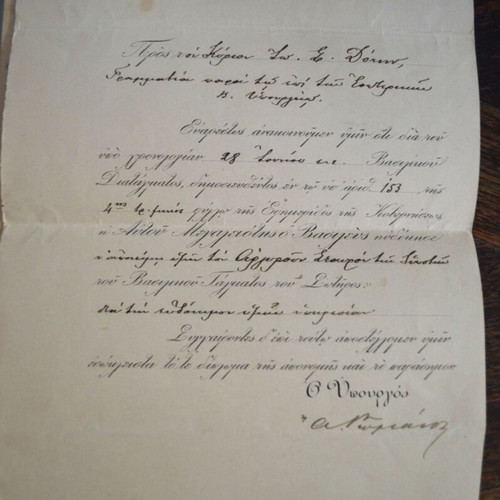 Πρὸς τὸν Κύριον Ἰω. Σ. Δόσην,
Γραμματέα παρὰ τῷ ἐπὶ τῆς Ἐσωτερικῶν
Β. Ὑπουργείῳ.
Εὐαρέστως ἀνακοινοῦμεν ὑμῖν ὅτι διὰ τοῦ
ὑπὸ χρονολογίαν 28 Ἰουνίου ἐ.ἔ. Βασιλικοῦ
Διατάγματος, δημοσιευθέντος ἐν τῷ ὑπ' ἀριθ. 153 τῆς
4ης τρ. μηνὸς φύλλῳ τῆς Ἐφημερίδος τῆς Κυβερνήσεως
ἡ Αὐτοῦ Μεγαλειότης ὁ Βασιλεὺς ηὐδόκησε
ν' ἀπονείμῃ ὑμῖν τὸν Ἀργυροῦν Σταυρὸν τῶν Ἱπποτῶν
τοῦ Βασιλικοῦ Τάγματος τοῦ Σωτῆρος
διὰ τὴν εὐδόκιμον ὑμῶν ὑπηρεσίαν
Συγχαίροντες δ' ἐπὶ τούτῳ ἀποστέλλομεν ὑμῖν
ἐσώκλειστα τό τε δίπλωμα τῆς ἀπονομῆς καὶ τὸ παράσημον
Ὁ Ὑπουργός